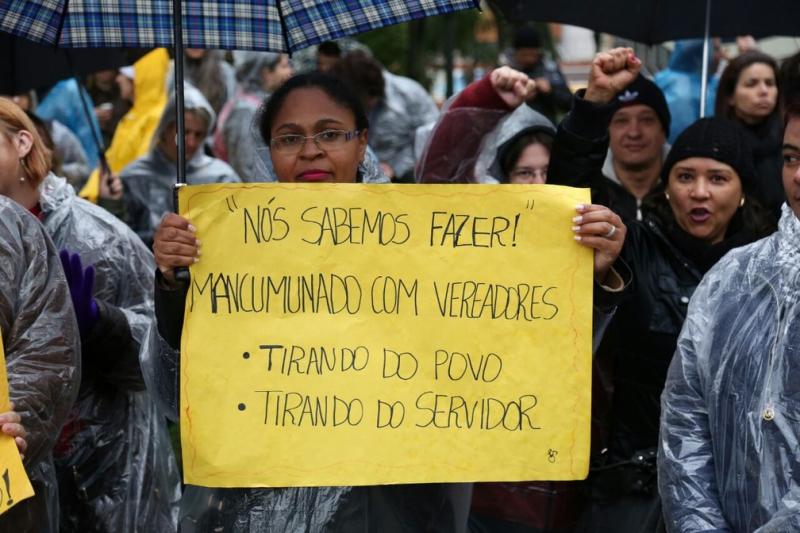 "NÓS SABEMOS FAZER!"
MANCUMUNADO COM VEREADORES
• TIRANDO DO POVO
• TIRANDO DO SERVIDOR